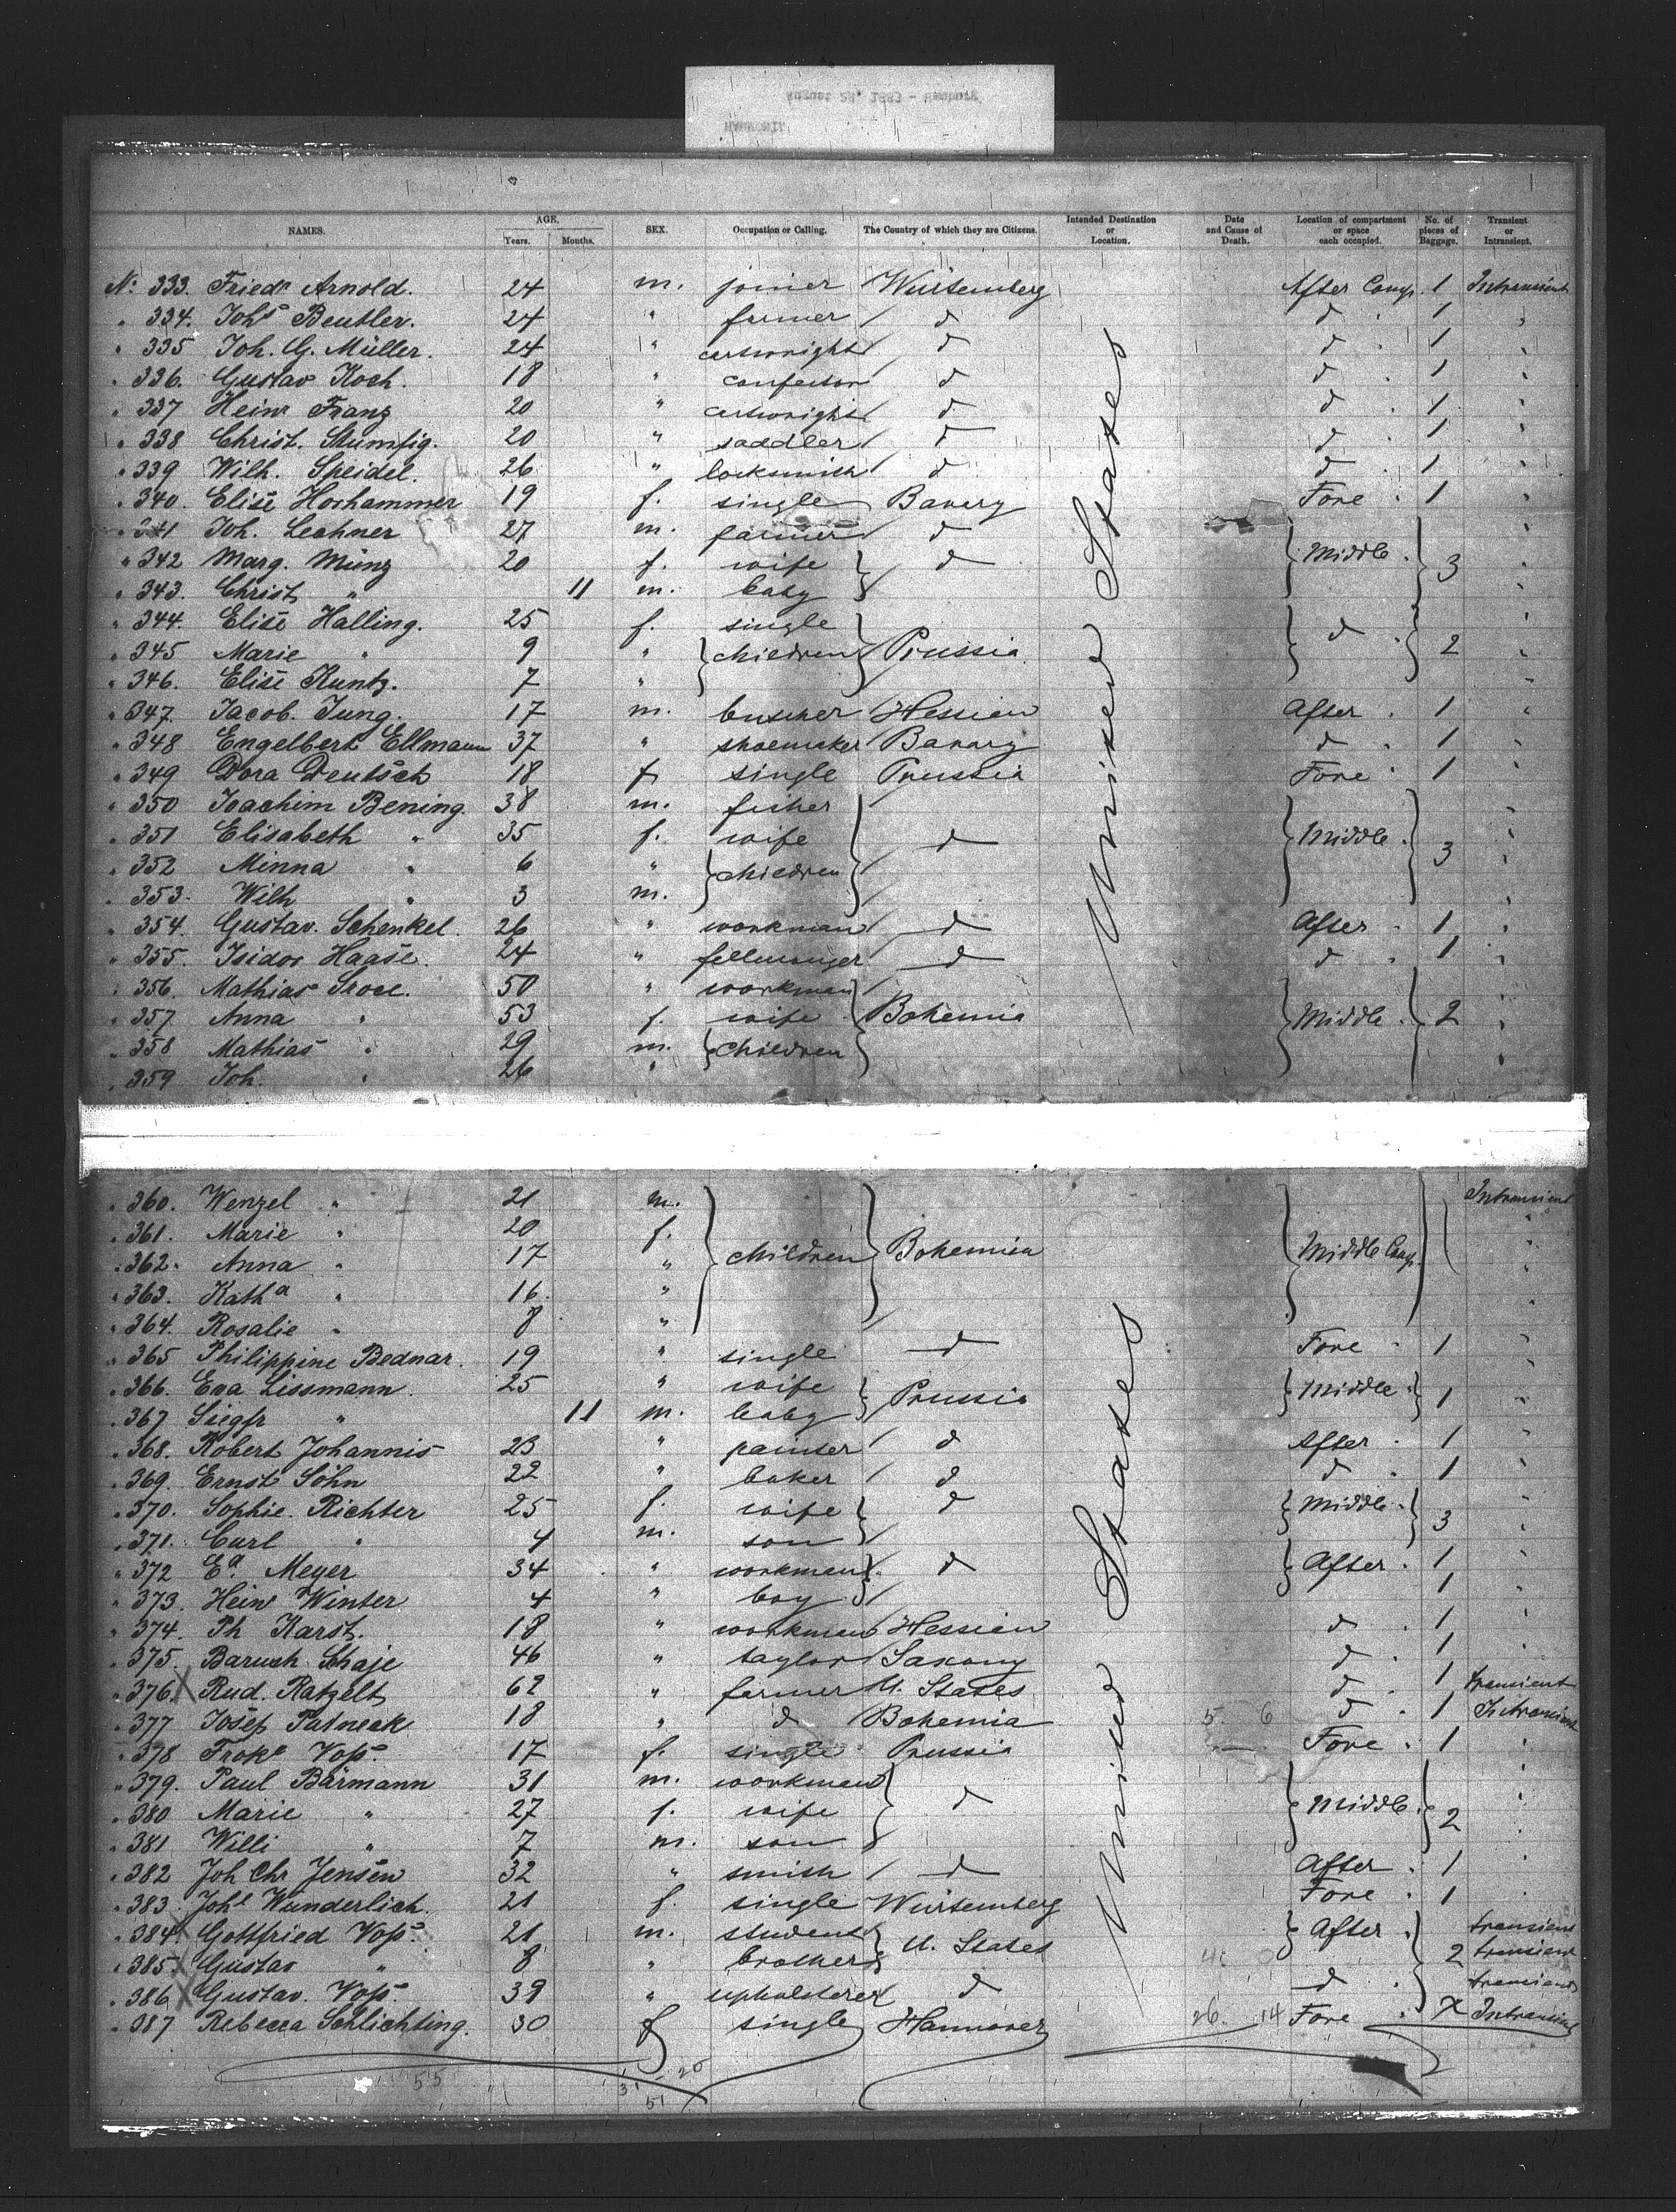 August 24, 1883 - Hamburg
HAMMONIA
NAMES. AGE. Years. Months. SEX. Occupation or Calling. The Country of which they are Citizens. Intended Destination or Location. Date and Cause of Death. Location of compartment or space each occupied. No. of pieces of Baggage. Transient or Intransient.
No: 333. Friedr Arnold. 24 m. joiner Würtemberg After Comp. 1 Intransient
" 334. Johs Beutler. 24 " farmer d d 1 "
" 335 Joh. G. Müller. 24 " cartwright d d 1 "
" 336. Gustav Koch. 18 " confector d d 1 "
" 337 Heinr Franz 20 " cartwright d d 1 "
" 338 Christ. Stumfig. 20 " saddler d d 1 "
" 339 Wilh. Speidel. 26 " locksmith d d 1 "
" 340. Elise Horhammer 19 f. single Bavary Fore " 1 "
" 341 Joh. Leohner 27 m. farmer d
" 342 Marg. Münz 20 f. wife d Middle " 3 "
" 343. Christ " 11 m. baby "
" 344. Elise Halling. 25 f. single d " 2 "
" 345 Marie " 9 " children Prussia "
" 346. Elise Kuntz. 7 " "
" 347. Jacob. Jung. 17 m. butcher Hessian After " 1 "
" 348 Engelbert Ellmann 37 " shoemaker Bavary d " 1 "
" 349 Dora Deutsch 18 f single Prussia Fore 1 "
" 350 Joachim Bening. 38 m. fisher "
" 351 Elisabeth " 35 f. wife d Middle " 3 "
" 352 Minna " 6 " children "
" 353. Wilh " 3 m. "
" 354. Gustav. Schenkel. 26 " workman d After " 1 "
" 355. Isidor Haase. 24 " fellmonger d d " 1 "
" 356. Mathias 50 " workman "
" 357. Anna " 53 f. wife Bohemia Middle " 2 "
" 358 Mathias " 29 m. children "
" 359 Joh. " 26 "
United States
" 360. Wenzel " 21 m. Intransient
" 361. Marie " 20 f. "
" 362. Anna " 17 " children Bohemia Middle Comp. "
" 363. Katha " 16. " "
" 364. Rosalie " 8 " "
" 365 Philippine Bednar. 19 " single d Fore " 1 "
" 366. Eva Lissmann. 25 " wife Prussia Middle " 1 "
" 367 Siegfr " 11 m. baby
" 368. Robert Johannis 23 " painter d After " 1 "
" 369. Ernst Söhn 22 " baker d d " 1 "
" 370. Sophie. Richter 25 f. wife d Middle " 3 "
" 371. Curl " 4 m. son "
" 372 Ed. Meyer 34 " workman d After " 1 "
" 373. Heinr Winter 4 " boy 1 "
" 374. Ph Karst. 18 " workman Hessian d " 1 "
" 375. Baruch Schaje 46 " taylor Saxony d " 1 "
" 376 X Rud. Ratzelt 62 " farmer U. States d " 1 transient
" 377 Josef Patneak 18 " d Bohemia 5. 6 d " 1 Intransient
" 378 Voss. 17 f. single Prussia Fore " 1 "
" 379. Paul Bärmann 31 m. workman "
" 380 Marie " 27 f. wife d Middle " 2 "
" 381 Willi " 7 m. son "
" 382 Joh Chr Jensen 32 " smith d After " 1 "
" 383. Joh Wunderlich. 21 f. single Würtemberg Fore " 1 "
" 384 X Gottfried Voss 21 m. student U. States After " 2 transient
" 385 X Gustav " 8 " brother transient
" 386 X Gustav. Voss. 39 " upholsterer d d transient
" 387 Rebecca Schlichting. 30 f single Hannover 26. 14 Fore Intransient
United States
55 31 20
51